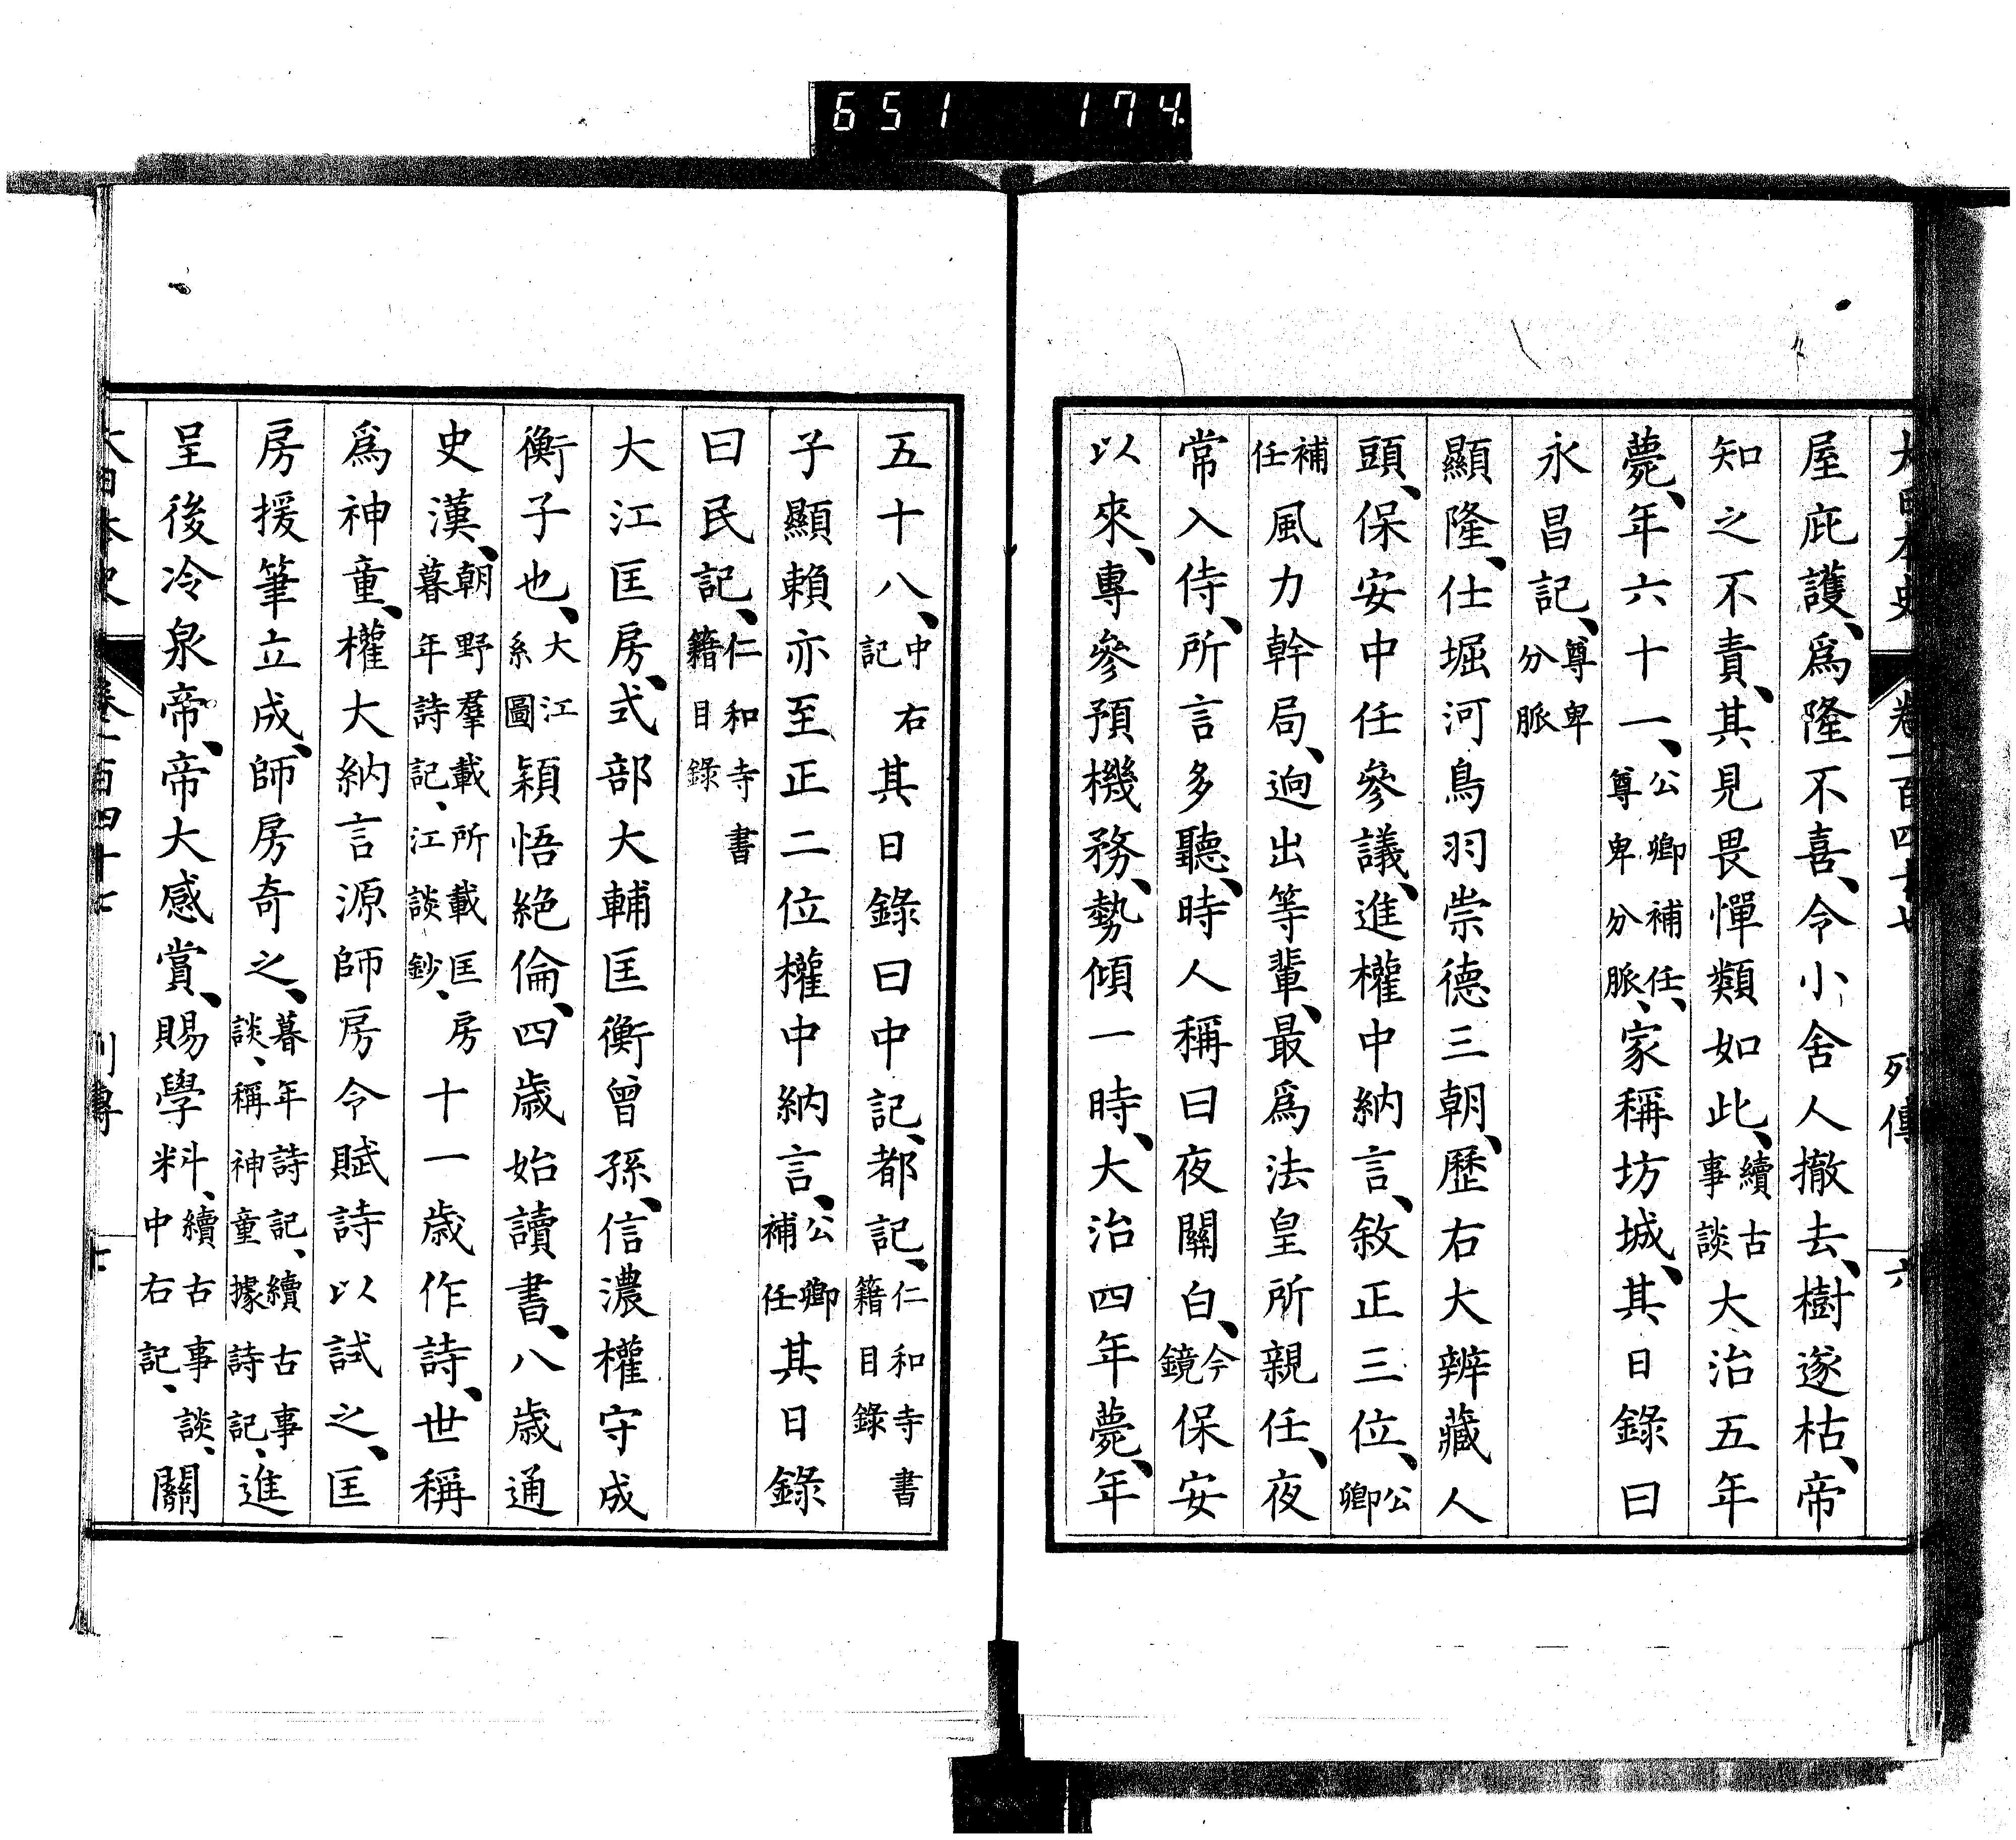 651 174
大日本史 卷一百四十七 列傳 六
屋庇護、爲隆不喜、令小舍人撤去、樹遂枯、帝
知之不責、其見畏憚類如此、續古事談大治五年
薨、年六十一、公卿補任、尊卑分脈、家稱坊城、其日錄曰
永昌記、尊卑分脈
顯隆、仕堀河鳥羽崇德三朝、歷右大辨藏人
頭、保安中任參議、進權中納言、敘正三位、公卿
補任風力幹局、逈出等輩、最爲法皇所親任、夜
常入侍、所言多聽、時人稱曰夜關白、今鏡保安
以來、專參預機務、勢傾一時、大治四年薨、年
五十八、中右記其日錄曰中記、都記、仁和寺書籍目錄
子顯賴亦至正二位權中納言、公卿補任其日錄
曰民記、仁和寺書籍目錄
大江匡房、式部大輔匡衡曾孫、信濃權守成
衡子也、大江系圖穎悟絕倫、四歲始讀書、八歲通
史漢、朝野羣載所載匡房暮年詩記、江談鈔、十一歲作詩、世稱
爲神童、權大納言源師房令賦詩以試之、匡
房援筆立成、師房奇之、暮年詩記、續古事談、稱神童據詩記、進
呈後冷泉帝、帝大感賞、賜學料、續古事談、中右記、關
大日本史 卷一百四十七 列傳 七